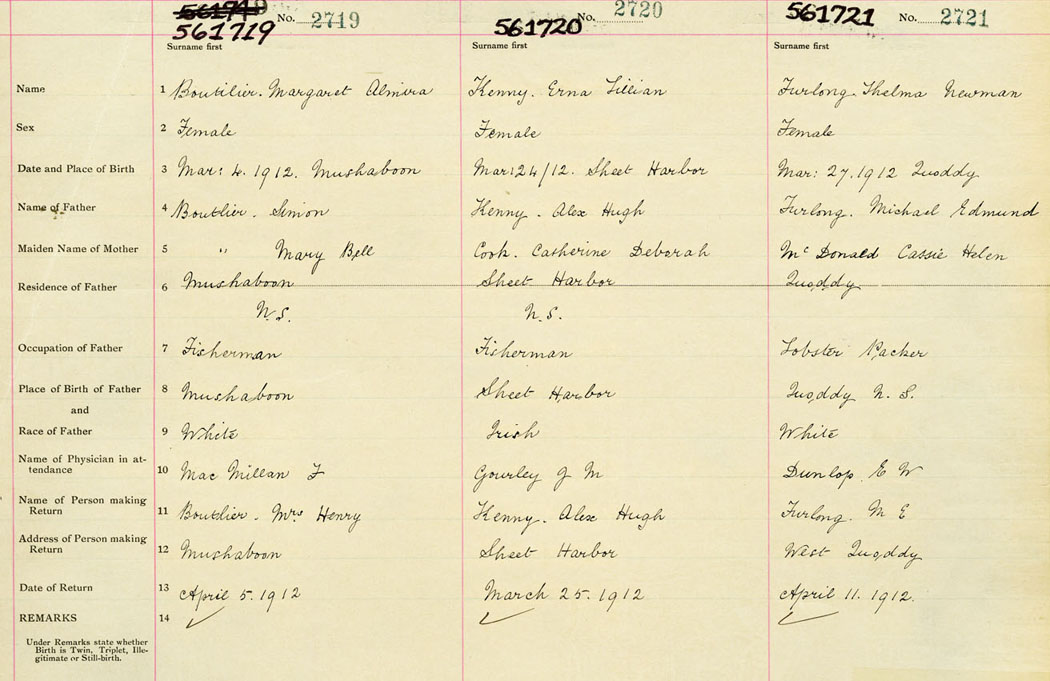 561719 No. 2719 561720 No. 2720 561721 No. 2721
Surname first Surname first Surname first
Name 1 Boutilier. Margaret Almira Kenny. Erna Lillian Furlong. Thelma Newman
Sex 2 Female Female Female
Date and Place of Birth 3 Mar: 4. 1912. Mushaboon Mar: 24/12. Sheet Harbor Mar: 27. 1912 Quoddy
Name of Father 4 Boutlier. Simon Kenny. Alex Hugh Furlong. Michael Edmund
Maiden Name of Mother 5 " Mary Bell Cook. Catherine Deborah Mc Donald Cassie Helen
Residence of Father 6 Mushaboon Sheet Harbor Quoddy
N.S. N.S.
Occupation of Father 7 Fisherman Fisherman Lobster Packer
Place of Birth of Father 8 Mushaboon Sheet Harbor Quoddy N. S.
and
Race of Father 9 White Irish White
Name of Physician in at-
tendance 10 Mac Millan F Gourley J M Dunlop E W
Name of Person making
Return 11 Boutlier. Mrs Henry Kenny. Alex Hugh Furlong. M E
Address of Person making
Return 12 Mushaboon Sheet Harbor West Quoddy
Date of Return 13 April 5. 1912 March 25. 1912 April 11. 1912.
REMARKS 14
Under Remarks state whether
Birth is Twin, Triplet, Ille-
gitimate or Still-birth.